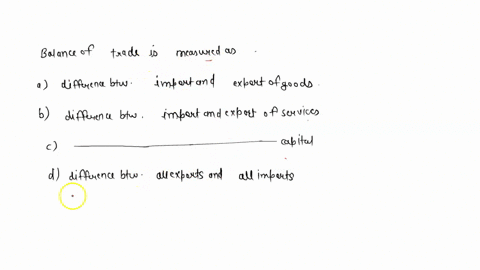 Balance of trade is measured as .
a) difference btw. import and export of goods.
b) difference btw. import and export of services
c) ———————— capital
d) difference btw. all exports and all imports